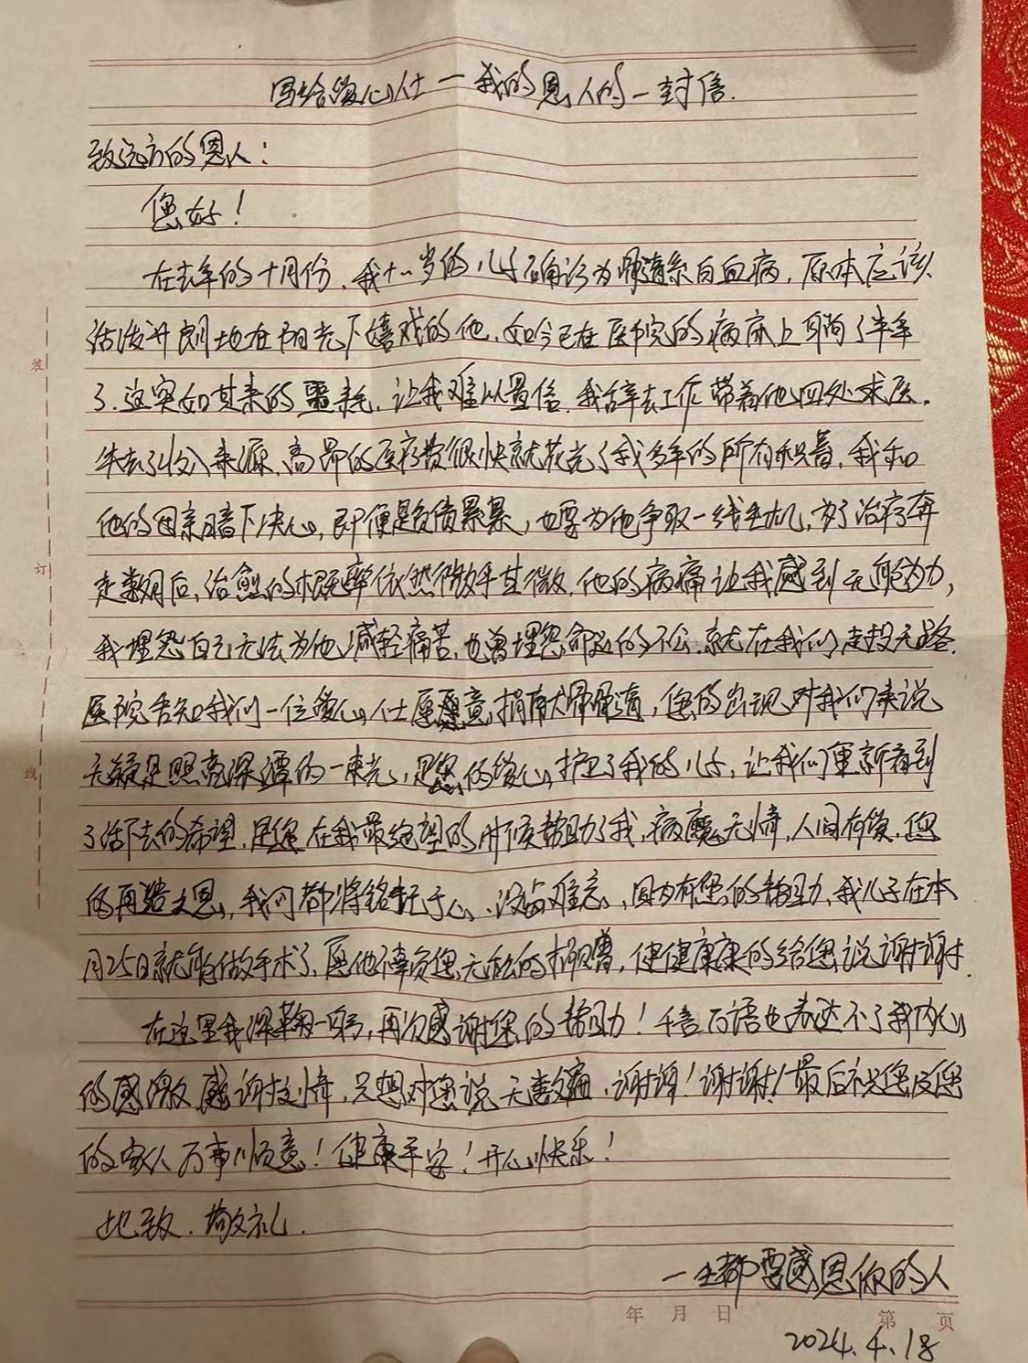 写给爱心人士—我的恩人的一封信.
致远方的恩人:
您好!
在去年的十月份.我十一岁的儿子确诊为髓系白血病,原本应该
活泼开朗地在阳光下嬉戏的他,如今已在医院的病床上躺了半年
了.这突如其来的噩耗,让我难以置信.我辞去工作带着他四处求医.
失去了收入来源,高昂的医疗费很快就花光了我多年的所有积蓄,我和
他的母亲暗下决心,即便是负债累累,也要为他争取一线生机,为了治疗奔
走数月后,治愈的概率依然微乎其微.他的病痛让我感到无能为力,
我埋怨自己无法为他减轻痛苦,也曾埋怨命运的不公.就在我们走投无路.
医院告知我们一位爱心人士愿意捐献骨髓,您的出现对我们来说
无疑是照亮深潭的一束光,是您的爱心护卫了我的儿子,让我们重新看到
了活下去的希望.是您在我最绝望的时候帮助了我,病魔无情,人间有爱.您
的再造之恩,我们都将铭记于心、没齿难忘,因为有您的帮助,我儿子在本
月25日就能做手术了.愿他不负您无私的捐赠,健健康康的给您说谢谢.
在这里我深鞠一躬,再次感谢您的帮助!千言万语也表达不了我内心
的感激感谢之情,只想对您说无数遍,谢谢!谢谢!最后祝您及您
的家人万事顺意!健康平安!开心快乐!
此致.敬礼.
一生都要感恩你的人
年 月 日 第 页
2024.4.18
装
订
线